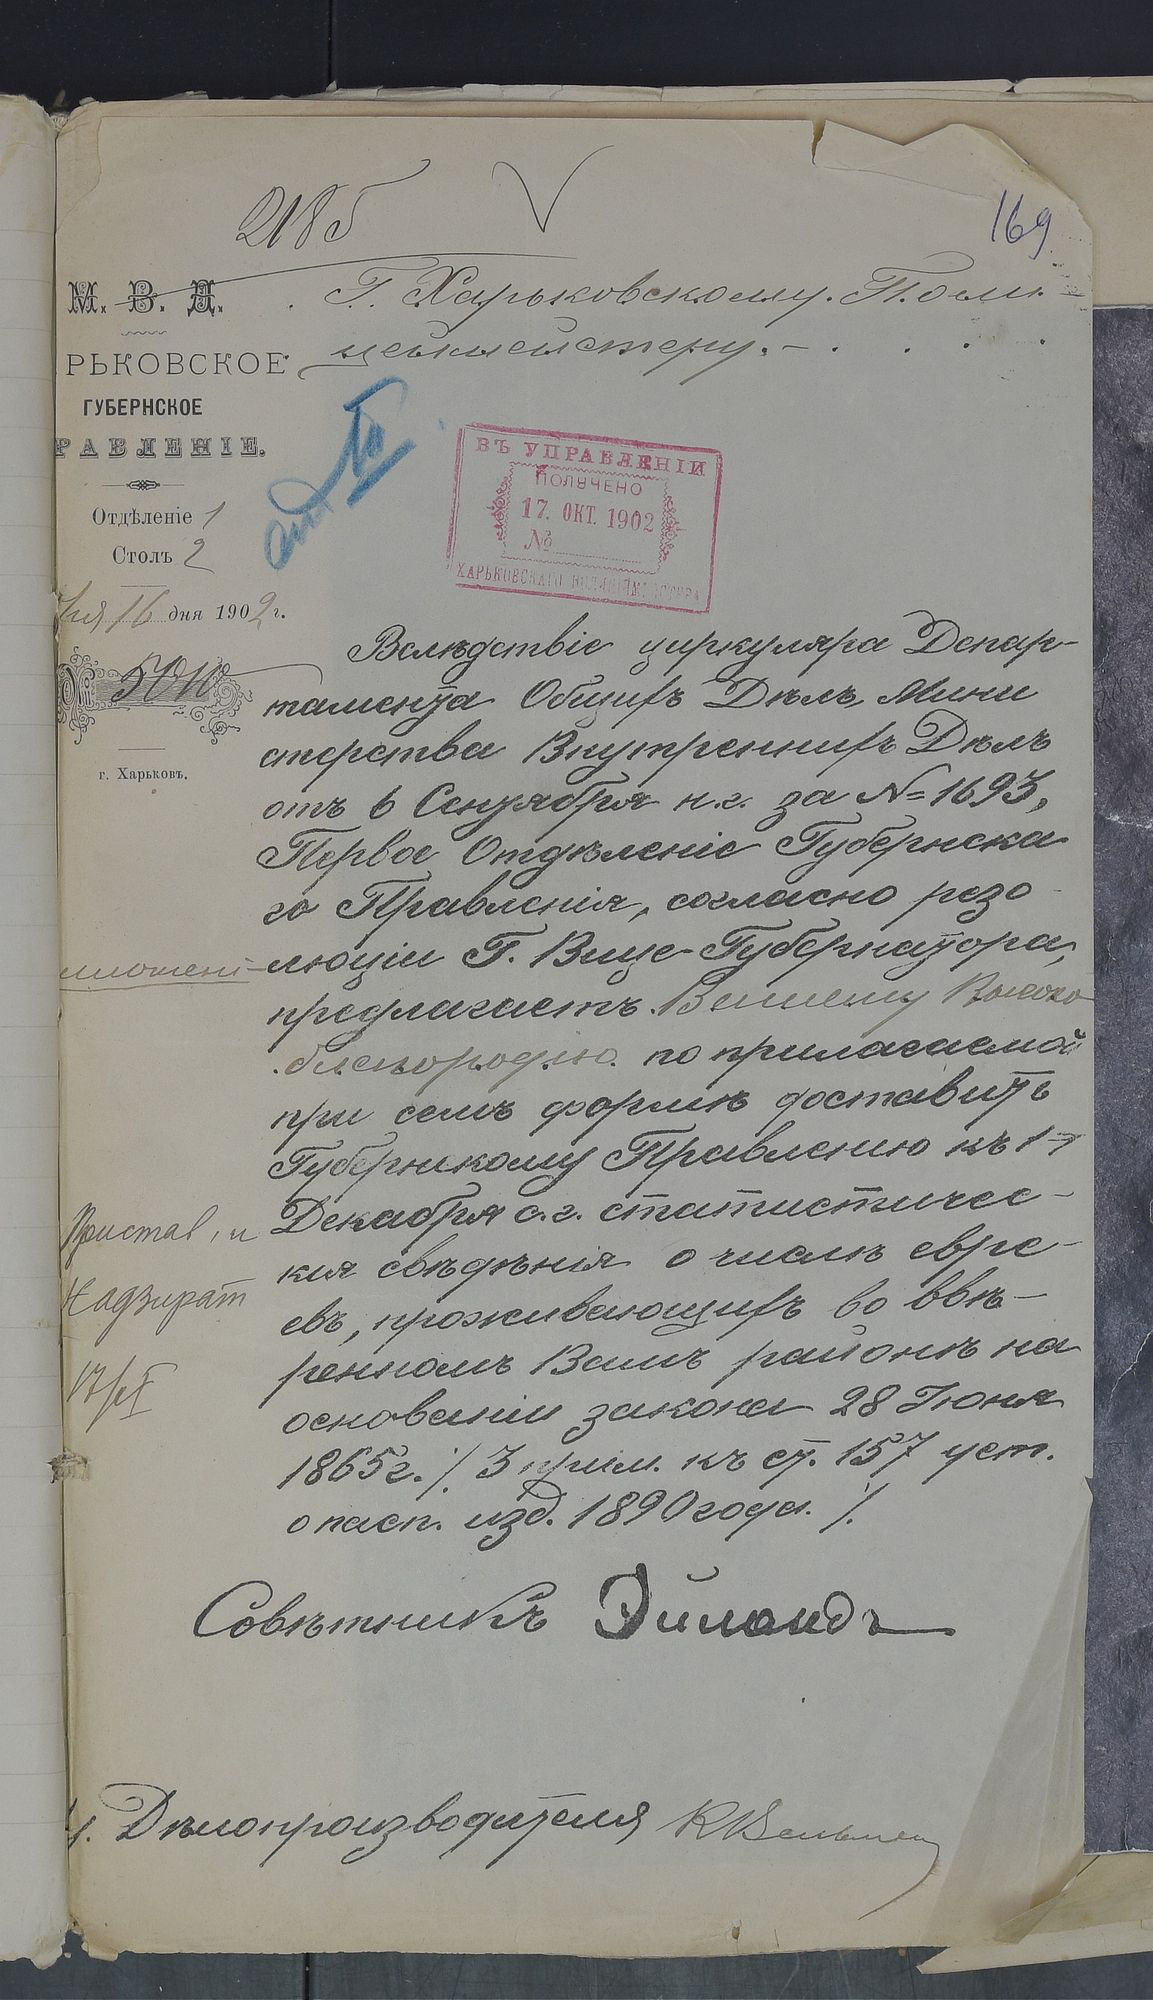 2185
169
М. В. Д.
РЬКОВСКОЕ
ГУБЕРНСКОЕ
РАВЛЕНІЕ.
Отдѣленіе 1
Столъ 2
16 дня 1902 г.
№
г. Харьковъ.
Г. Харьковскому Поли-
цеймейстеру.
ВЪ УПРАВЛЕНІИ
ПОЛУЧЕНО
17. ОКТ. 1902
№
ХАРЬКОВСКАГО ПОЛИЦІЙМЕЙСТЕРА
Вслѣдствіе циркуляра Депар-
тамента Общихъ Дѣлъ Мини
стерства Внутреннихъ Дѣлъ
отъ 6 Сентября н.г. за №=1693,
Первое Отдѣленіе Губернска
го Правленія, согласно резо
люціи Г. Вице-Губернатора,
предлагаетъ Вашему Высоко
благородію по прилагаемой
при семъ формѣ доставить
Губернскому Правленію къ 1-
Декабря с.г. статистичес-
кія свѣдѣнія о числѣ евре-
евъ, проживающихъ во ввѣ-
ренномъ Вамъ районѣ на
основаніи закона 28 Іюня
1865г. /. 3 прим. къ ст. 157 уст.
о пасп. изд. 1890 года. /.
Пристав. и
Надзират
Совѣтникъ Эйландъ
Дѣлопроизводителя